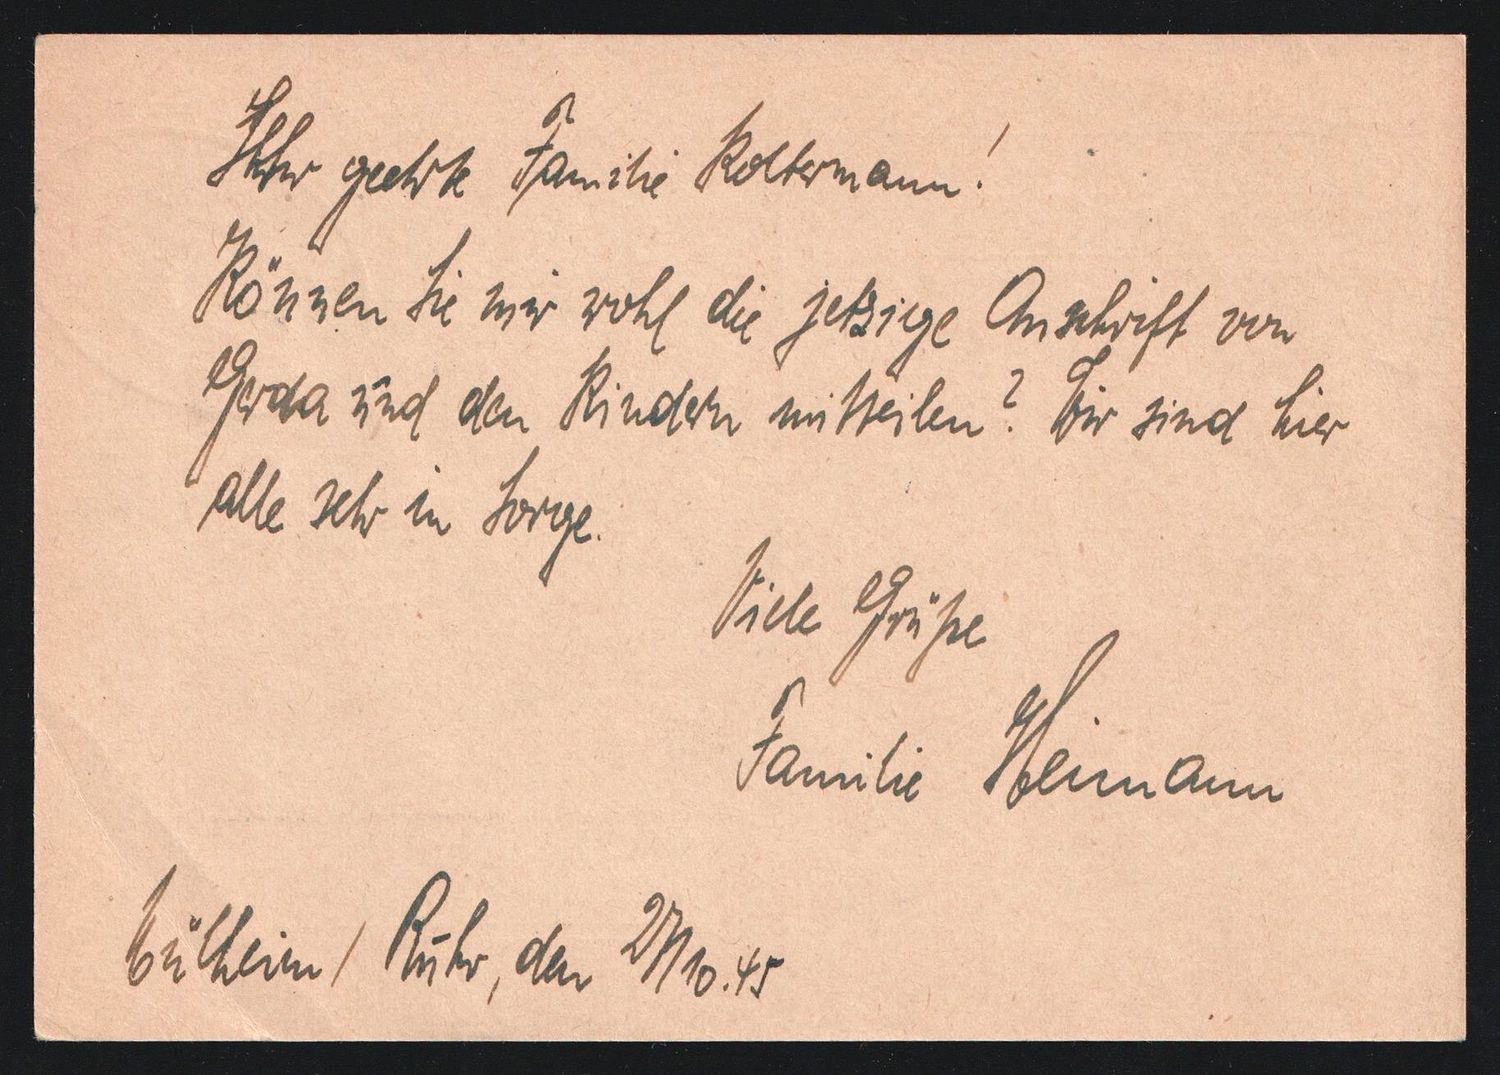 Sehr geehrte Familie Koltermann!
Können Sie mir wohl die jetzige Anschrift von
Gerda und den Kindern mitteilen? Wir sind hier
alle sehr in Sorge.
Viele Grüße
Familie Heimann
Mülheim / Ruhr, den 27/10.45